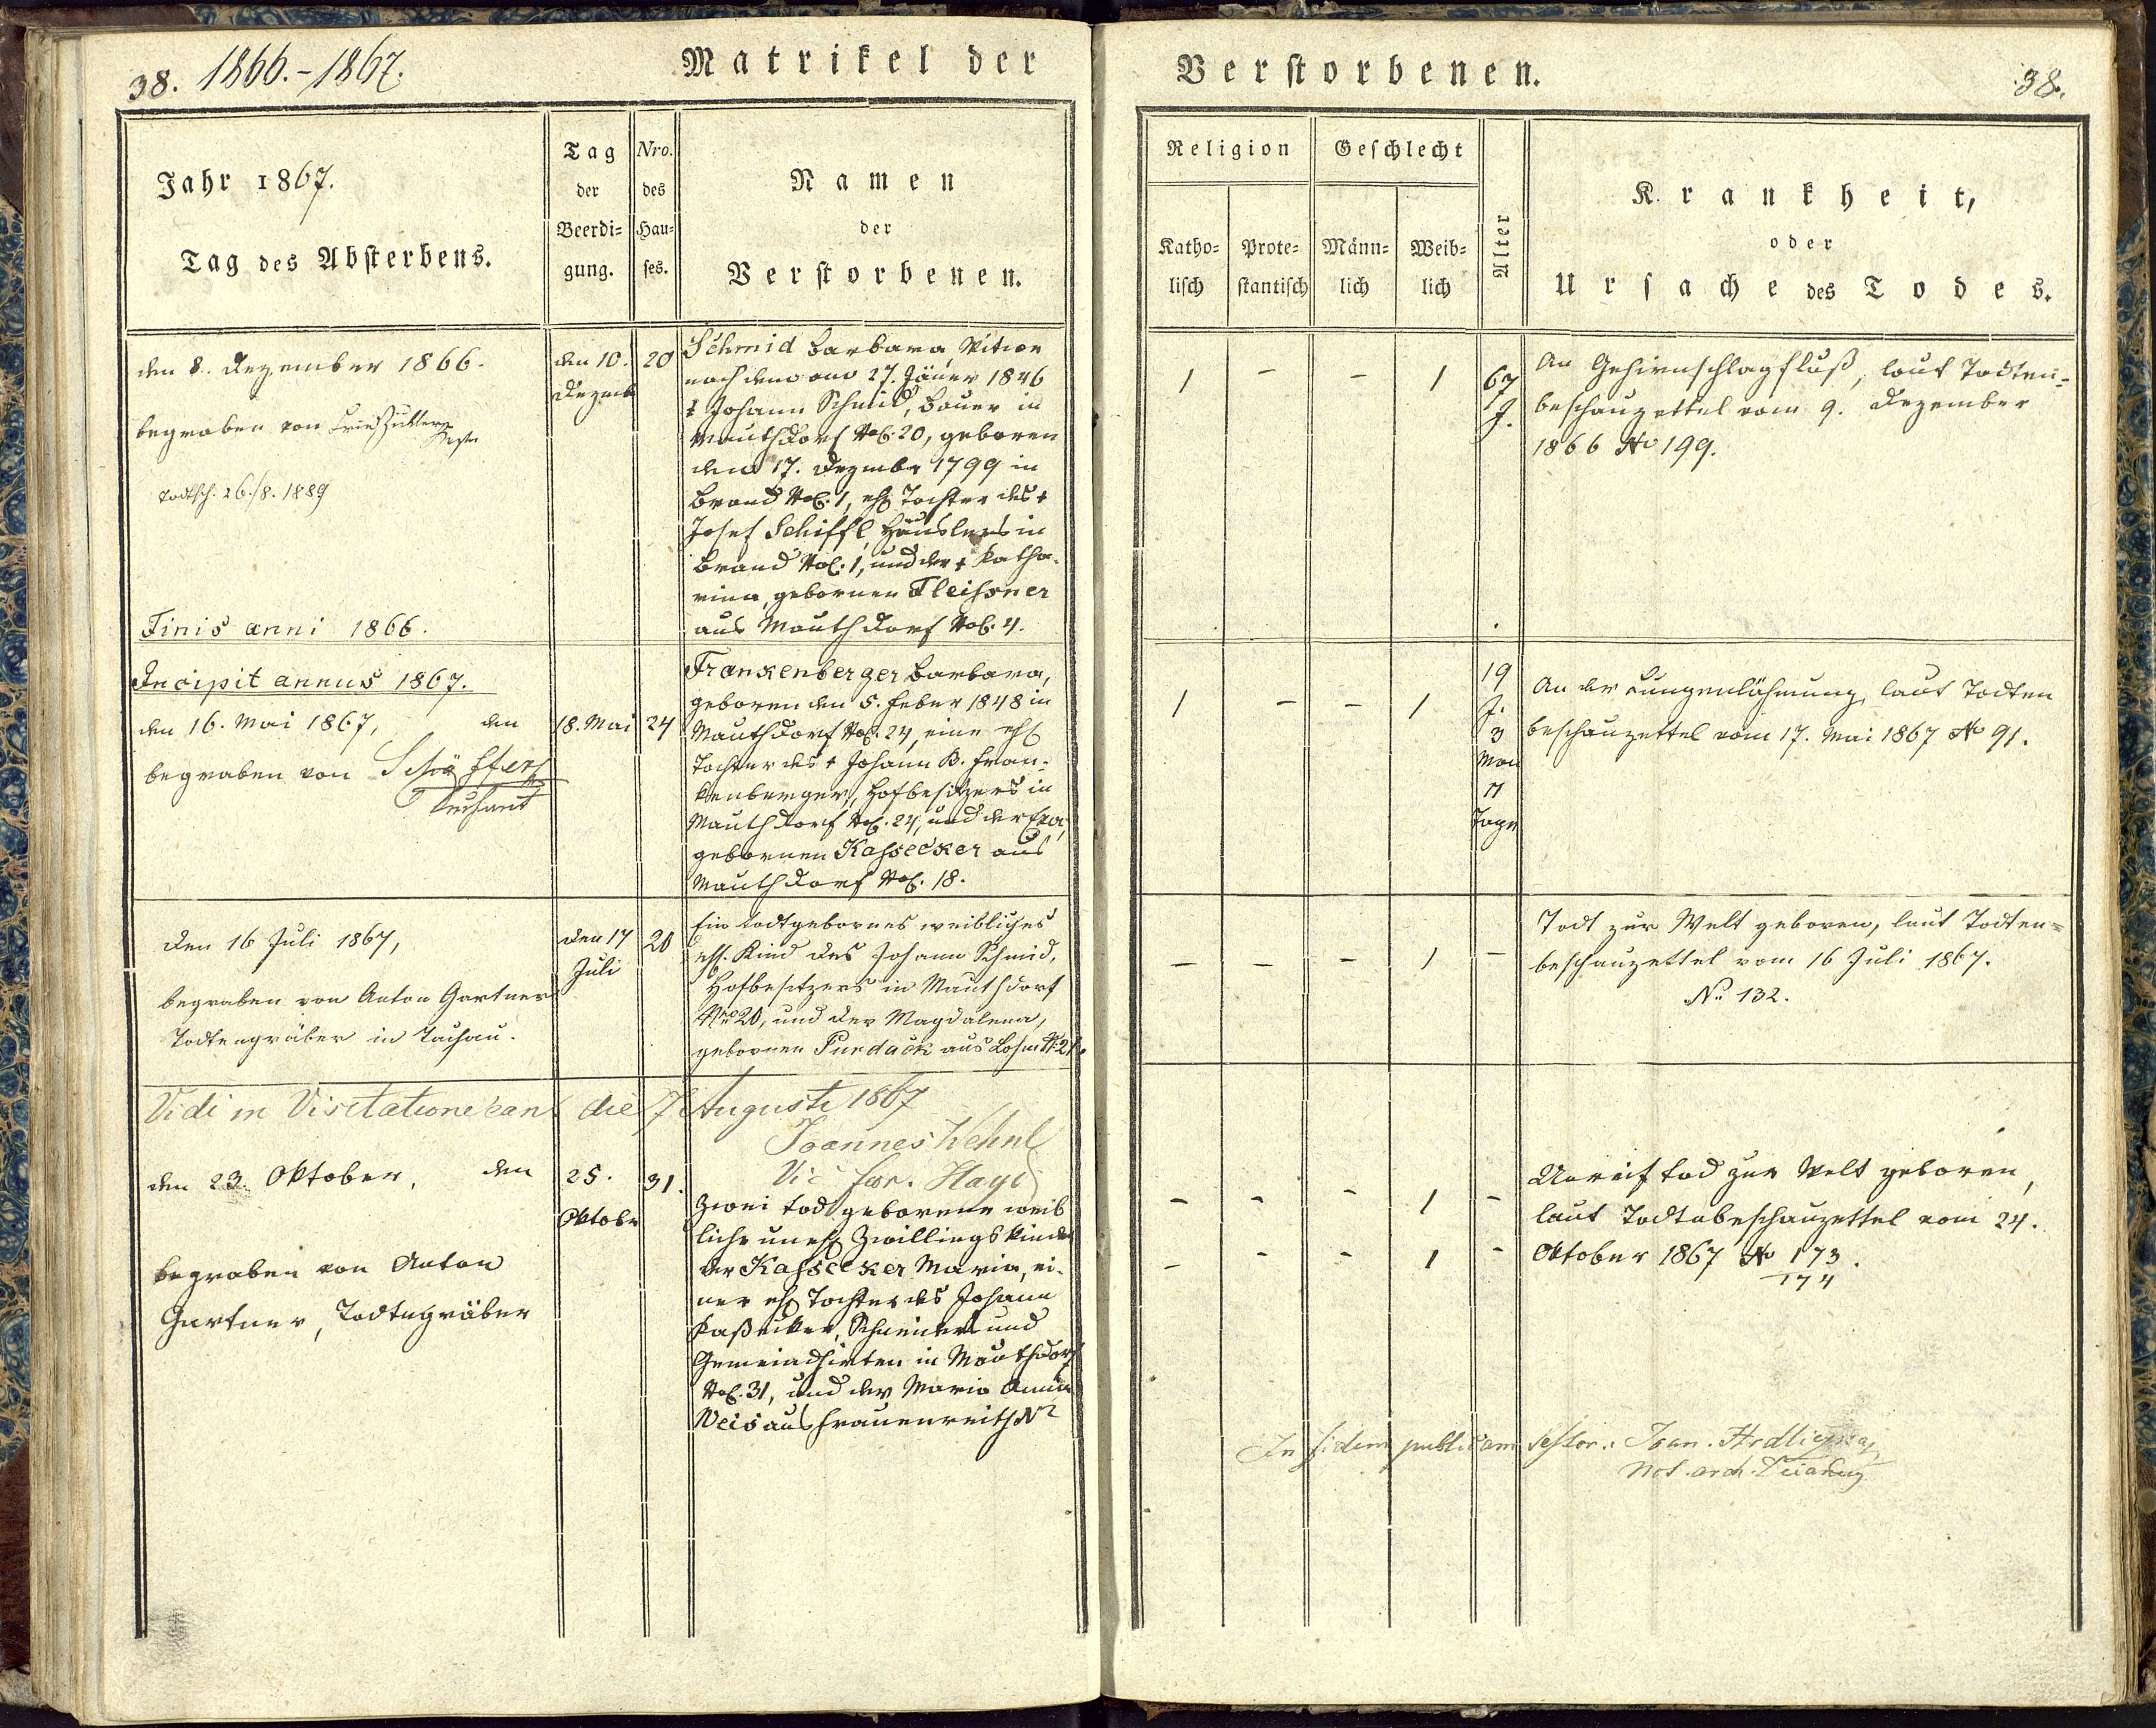 38. 1866.-1867.
Matrikel der
Verstorbenen.
38.
Jahr 1867.
Tag des Absterbens.
Tag
der
Beerdi=
gung.
Nro.
des
Hau=
ses.
Namen
der
Verstorbenen.
Religion
Geschlecht
Katho=
lisch
Prote=
stantisch
Männ=
lich
Weib=
lich
Alter
Krankheit,
oder
Ursache des Todes.
den 8. Dezember 1866.
begraben von
26./8. 1889
Finis anni 1866.
den 10.
Dezemb
20
Schmid Barbara, Witwe
nach dem am 27. Jäner 1846
† Johann Schmid, Bauer in
Mauthdorf No C. 20, geboren
den 17. Dezember 1799 in
Brand No C. 1, ehl Tochter des †
Josef Schiffl, Häuslers in
Brand No C. 1, und der † Katha-
rina, gebornen Fleissner
aus Mauthdorf No C. 4.
1 – – 1
67
J.
An Gehirnschlagfluß, laut Todten=
beschauzettel vom 9. Dezember
1866 No 199.
Incipit annus 1867.
den 16. Mai 1867, den
begraben von
Dechant
18. Mai
24
Frankenberger Barbara,
geboren den 5. Feber 1848 in
Mauthdorf No C. 24, eine ehl
Tochter des † Johann B. Fran-
kenberger, Hofbesitzers in
Mauthdorf No C. 24, und der Eva,
gebornen Kassecker aus
Mauthdorf No C. 18.
1 – – 1
19
J.
3
Mon
11
Tage
An der Lungenlähmung, laut Todten
beschauzettel vom 17. Mai 1867 No 91.
den 16 Juli 1867,
begraben von Anton Gartner
Todtengräber in Tachau.
den 17
Juli
20
Ein todtgebornes weibliches
ehl. Kind des Johann Schmid,
Hofbesitzers in Mauthdorf
Nro 20, und der Magdalena,
gebornen Purdack aus Losim N. 21.
– – – 1 –
Todt zur Welt geboren, laut Todten=
beschauzettel vom 16 Juli 1867.
No 132.
Vidi in Visitatione can die 7 Augusti 1867
Joannes Wehnl
Vic for. Hayd
den 23. Oktober, den
begraben von Anton
Gartner, Todtengräber
25.
Oktobr
31.
Zwei tod geborene weib
liche unehl Zwillingskinder
der Kassecker Maria, ei-
ner ehl Tochter des Johann
Kaßecker, Schneiders und
Gemeindhirten in Mauthdorf
No C. 31, und der Maria Anna
Weis aus Frauenreith No
– – – 1 –
– – – 1 –
Unreif tod zur Welt geboren,
laut Todtnbeschauzettel vom 24.
Oktober 1867 No 173.
174
In fidem publicam